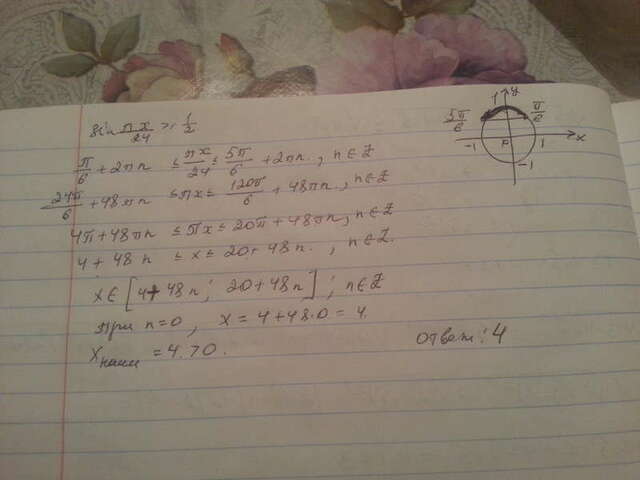 sin πx/24 ≥ 1/2
π/6 + 2πn ≤ πx/24 ≤ 5π/6 + 2πn, n ∈ Z
24π/6 + 48πn ≤ πx ≤ 120π/6 + 48πn, n ∈ Z
4π + 48πn ≤ πx ≤ 20π + 48πn, n ∈ Z
4 + 48n ≤ x ≤ 20 + 48n, n ∈ Z.
x ∈ [4 + 48n; 20 + 48n]; n ∈ Z
При n=0, x = 4 + 48·0 = 4.
xнаим = 4 > 0.
Ответ: 4
y
1
5π/6 π/6
-1 1 x
-1